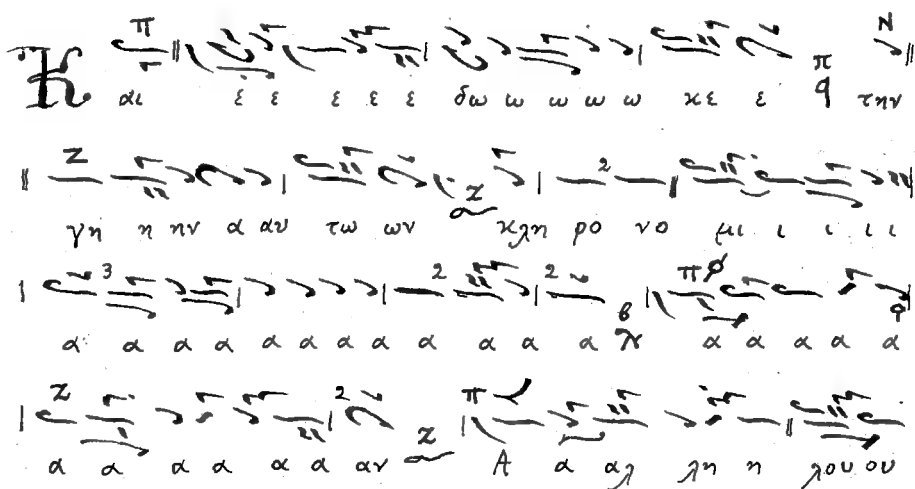 Κ αι ε ε ε ε ε δω ω ω ω ω κε ε την
γη η ην α αυ τω ων κλη ρο νο μι ι ι ι ι
α α α α α α α α α α α α α α α α α
α α α α α α αν Α α αλ λη η λου ου